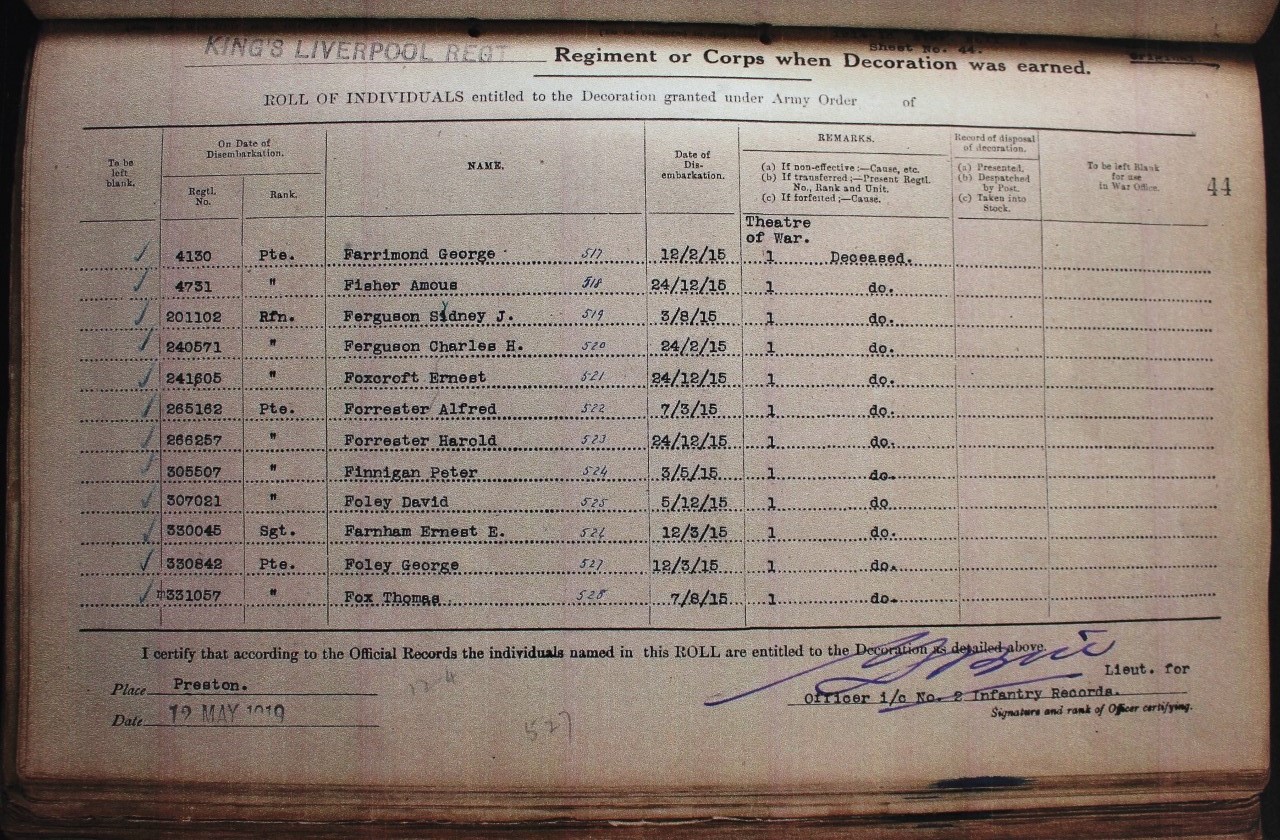 Sheet No. 44.
KING'S LIVERPOOL REGT Regiment or Corps when Decoration was earned.
ROLL OF INDIVIDUALS entitled to the Decoration granted under Army Order of
To be left blank. On Date of Disembarkation. NAME. Date of Dis-embarkation. REMARKS. Record of disposal of decoration. To be left Blank for use in War Office. 44
Regtl. No. Rank. (a) If non-effective :—Cause, etc. (a) Presented.
(b) If transferred ;—Present Regtl. No., Rank and Unit. (b) Despatched by Post.
(c) If forfeited ;—Cause. (c) Taken into Stock.
Theatre of War.
4130 Pte. Farrimond George 517 12/2/15 1 Deceased.
4731 " Fisher Amous 518 24/12/15 1 do.
201102 Rfn. Ferguson Sydney J. 519 3/8/15 1 do.
240571 " Ferguson Charles H. 520 24/2/15 1 do.
241605 " Foxcroft Ernest 521 24/12/15 1 do.
265162 Pte. Forrester Alfred 522 7/3/15 1 do.
266257 " Forrester Harold 523 24/12/15 1 do.
305507 " Finnigan Peter 524 3/5/15 1 do.
307021 " Foley David 525 5/12/15 1 do
330045 Sgt. Farnham Ernest E. 526 12/3/15 1 do.
330842 Pte. Foley George 527 12/3/15 1 do.
331057 " Fox Thomas 528 7/8/15 1 do.
I certify that according to the Official Records the individuals named in this ROLL are entitled to the Decoration as detailed above.
Lieut. for
Place Preston. Officer i/c No. 2 Infantry Records.
Date 12 MAY 1919 Signature and rank of Officer certifying.
527